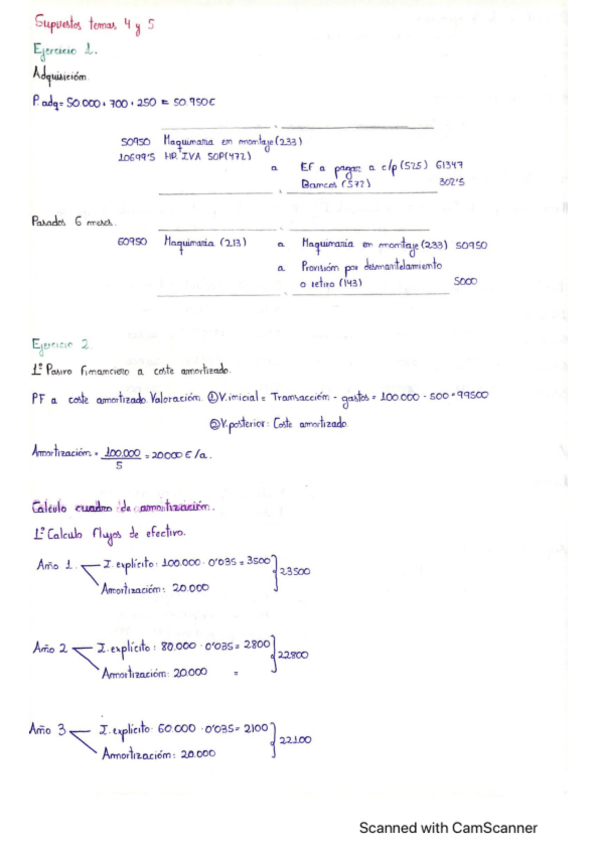 Supuestos temas 4 y 5
Ejercicio 1.
Adquisición.
P.adq = 50 000 + 700 + 250 = 50 950€
50950 Maquinaria en montaje (233)
10699'5 HP. IVA SOP(472)
a EF a pagar a c/p (525) 61347
Bancos (572) 302'5
Pasados 6 meses.
60950 Maquinaria (213) a Maquinaria en montaje (233) 50950
a Provisión por desmantelamiento
o retiro (143) 5000
Ejercicio 2.
1º Pasivo financiero a coste amortizado.
PF a coste amortizado. Valoración. ①V.inicial = Transacción - gastos = 100 000 - 500 = 99500
②V.posterior: Coste amortizado
Amortización = 100.000 / 5 = 20000 €/a.
Calculo cuadro de amortización.
1º Calculo flujos de efectivo.
Año 1. I. explícito: 100.000 · 0'035 = 3500
23500
Amortización: 20.000
Año 2 I. explícito: 80.000 · 0'035 = 2800
22800
Amortización: 20.000 =
Año 3 I. explícito: 60.000 · 0'035 = 2100
22100
Amortización: 20.000
Scanned with CamScanner